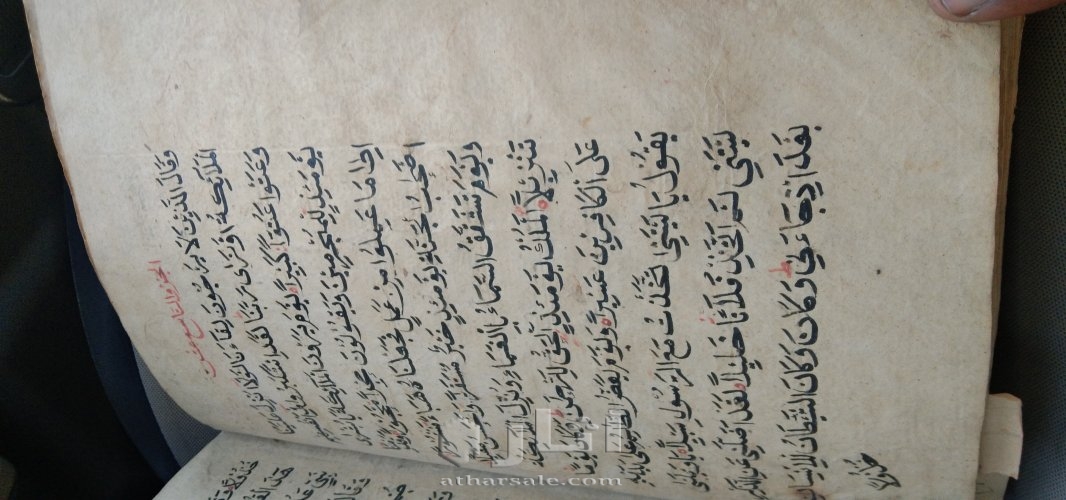 الجزء التاسع عشر
وَقَالَ الَّذِينَ لَا يَرْجُونَ لِقَاءَنَا لَوْلَا اُنْزِلَ عَلَيْنَا
الْمَلَائِكَةُ اَوْ نَرَى رَبَّنَا لَقَدِ اسْتَكْبَرُوا فِي اَنْفُسِهِمْ
وَعَتَوْا عُتُوًّا كَبِيرًا يَوْمَ يَرَوْنَ الْمَلَائِكَةَ لَا بُشْرَى
يَوْمَئِذٍ لِلْمُجْرِمِينَ وَيَقُولُونَ حِجْرًا مَحْجُورًا وَقَدِمْنَا
اِلَى مَا عَمِلُوا مِنْ عَمَلٍ فَجَعَلْنَاهُ هَبَاءً مَنْثُورًا
اَصْحٰبُ الْجَنَّةِ يَوْمَئِذٍ خَيْرٌ مُسْتَقَرًّا وَاَحْسَنُ مَقِيلًا
وَيَوْمَ تَشَقَّقُ السَّمَاءُ بِالْغَمَامِ وَنُزِّلَ الْمَلَائِكَةُ
تَنْزِيلًا الْمُلْكُ يَوْمَئِذٍ الْحَقُّ لِلرَّحْمَنِ وَكَانَ يَوْمًا
عَلَى الْكَافِرِينَ عَسِيرًا وَيَوْمَ يَعَضُّ الظَّالِمُ عَلَى يَدَيْهِ
يَقُولُ يَا لَيْتَنِي اتَّخَذْتُ مَعَ الرَّسُولِ سَبِيلًا يَا وَيْلَتَى
لَيْتَنِي لَمْ اَتَّخِذْ فُلَانًا خَلِيلًا لَقَدْ اَضَلَّنِي عَنِ الذِّكْرِ
بَعْدَ اِذْ جَاءَنِي وَكَانَ وَكَانَ الشَّيْطَانُ لِلْاِنْسَانِ
خذولا
آثار
atharsale.com